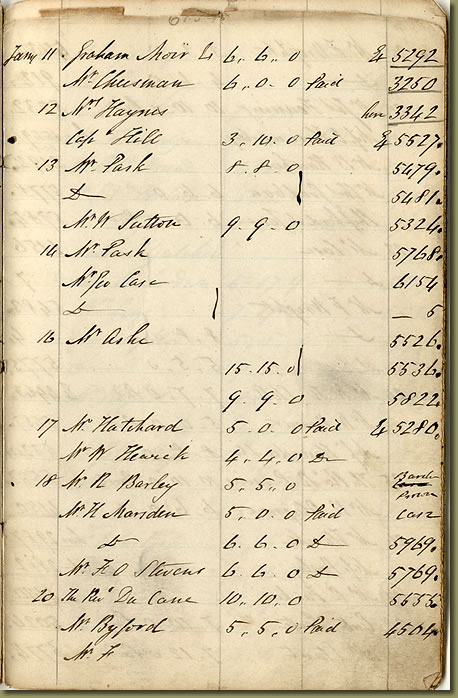 Jany 11 Graham Moir Es 6,, 6,, 0 & 5292
Mr Cheesman 6,, 0,, 0 Paid 3250
12 Mrs Haynes here 3342
Capn Hill 3,, 10,, 0 Paid & 5527.
13 Mr Pask 8.. 8.. 0 5479.
D 5481.
Mr W Sutton 9.. 9.. 0 5324.
14 Mr Pask 5768.
Mr Geo Case 6154
D — 5
16 Mr Ashe 5526.
15.. 15.. 0 5536.
9.. 9.. 0 5822.
17 Mr Hatchard 5.. 0.. 0 Paid & 5280.
Mr W 4.. 4.. 0 Do
18 Mr R Barley 5.. 5.. 0
Mr H Marsden 5.. 0.. 0 Paid Case
D 6.. 6.. 0 D 5969.
Mr F O Stevens 6.. 6.. 0 D 5769.
20 The Revd Du Cane 10.. 10.. 0
Mr Byford 5.. 5.. 0 Paid 4504.
Mr F